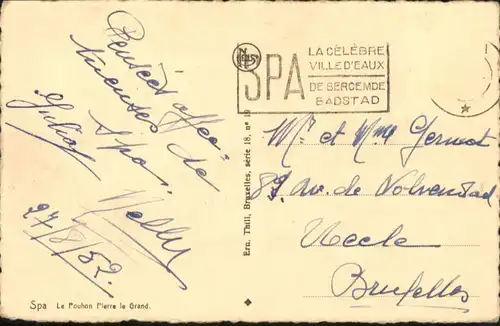 Pensées affec=
tueuses de
Spa.
Nelly
27/8/52.
Spa Le Pouhon Pierre le Grand.
Ern. Thill, Bruxelles, série 18, n° 19
NELS
SPA
LA CÉLÈBRE
VILLE D'EAUX
DE BEROEMDE
BADSTAD
Mr et Mme Gernot
89 Av. de Wolvendael
Uccle
Bruxelles